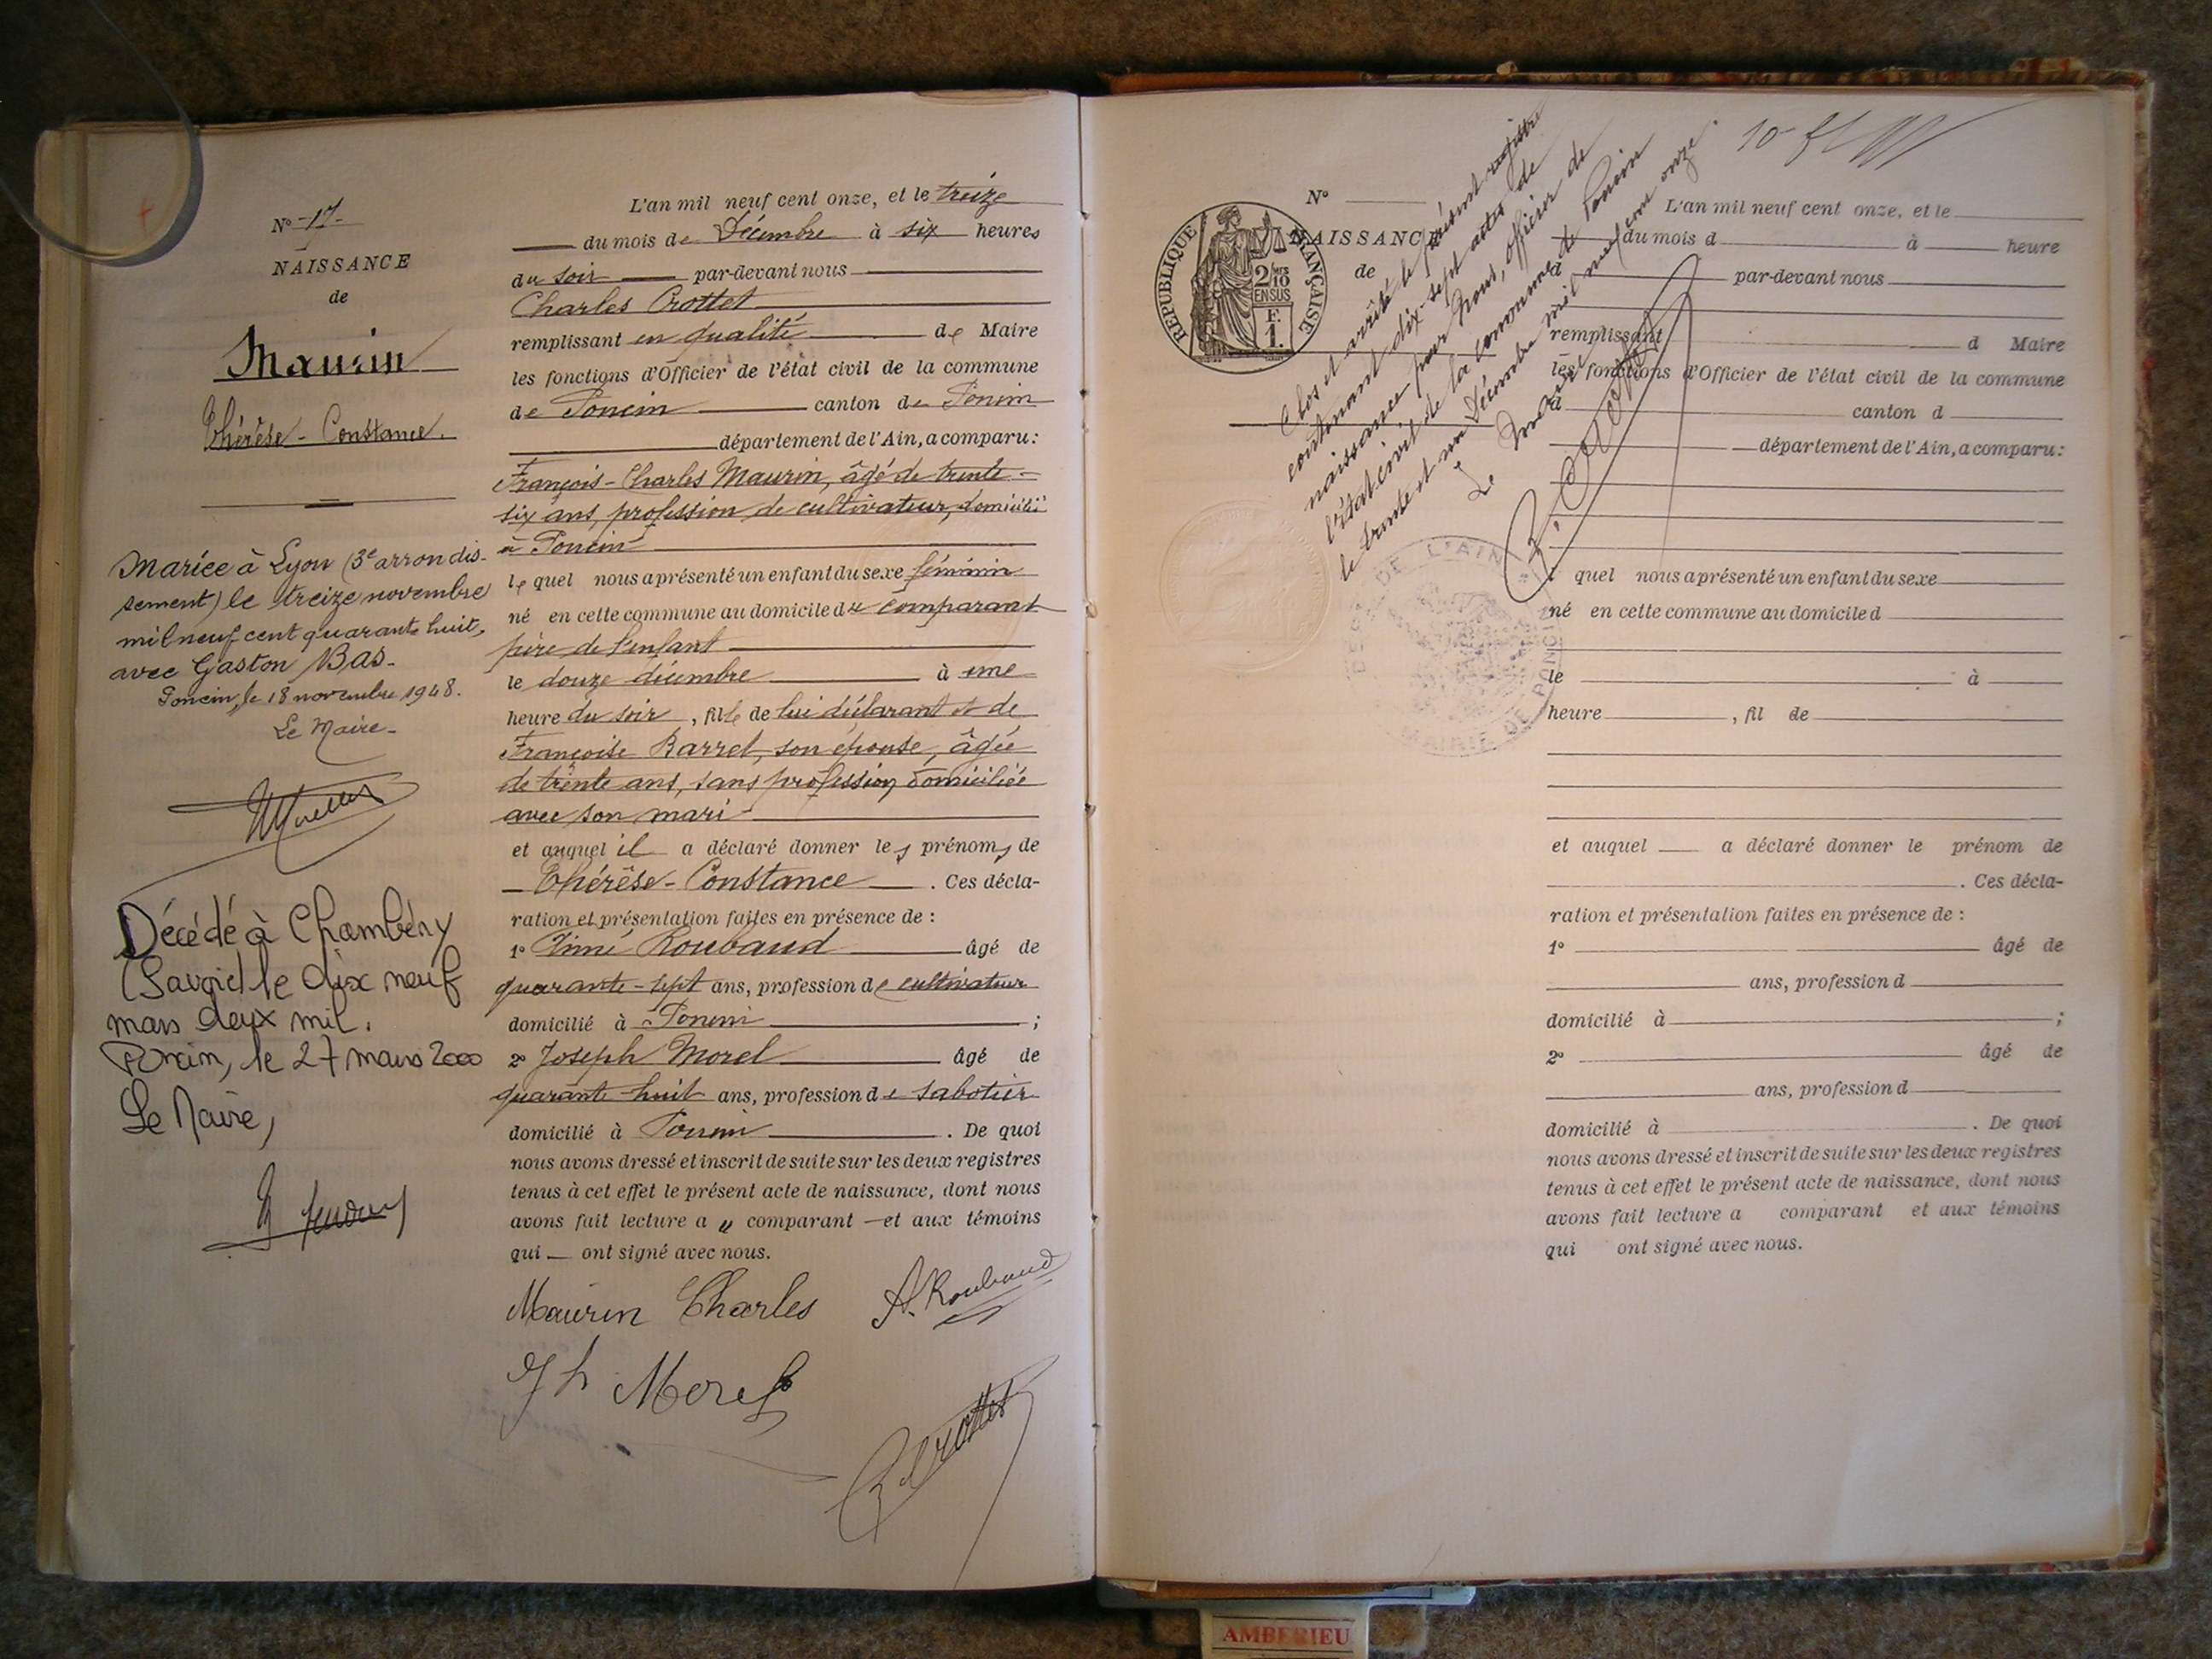 Nº -17-
NAISSANCE
de
Maurin
Thérèse - Constance.
Mariée à Lyon (3e arrondis-
sement) le treize novembre
mil neuf cent quarante huit,
avec Gaston Bas.
Poncin, le 18 novembre 1948.
Le Maire -
Décédé à Chambéry
(Savoie) le dix neuf
mars deux mil.
Poncin, le 27 mars 2000
Le Maire,
L'an mil neuf cent onze, et le treize
du mois de Décembre à six heures
du soir par-devant nous
Charles Crottet
remplissant en qualité de Maire
les fonctions d'Officier de l'état civil de la commune
de Poncin canton de Poncin
département de l'Ain, a comparu:
François-Charles Maurin, âgé de trente-
six ans, profession de cultivateur, domicilié
à Poncin
le quel nous a présenté un enfant du sexe féminin
né en cette commune au domicile du comparant
père de l'enfant
le douze décembre à une
heure du soir, fille de lui déclarant et de
Françoise Barrel, son épouse, âgée
de trente ans, sans profession, domiciliée
avec son mari
et auquel il a déclaré donner les prénoms de
Thérèse-Constance. Ces décla-
ration et présentation faites en présence de :
1º Aimé Roubaud âgé de
quarante-sept ans, profession de cultivateur
domicilié à Poncin ;
2º Joseph Morel âgé de
quarante-huit ans, profession de sabotier
domicilié à Poncin . De quoi
nous avons dressé et inscrit de suite sur les deux registres
tenus à cet effet le présent acte de naissance, dont nous
avons fait lecture a u comparant et aux témoins
qui ont signé avec nous.
Maurin Charles A. Roubaud
Jh Morel
Crottet
Nº
NAISSANCE
de
RÉPUBLIQUE FRANÇAISE
2/10
EN SUS
F.
1.
Clos et arrêté le présent registre
contenant dix-sept actes de
naissance par nous, officier de
l'état civil de la commune de Poncin
le trente et un Décembre mil neuf cent onze.
Le Maire
Crottet
DE L'AIN
MAIRIE DE PONCIN
L'an mil neuf cent onze, et le
du mois d à heure
d par-devant nous
remplissant d Maire
les fonctions d'Officier de l'état civil de la commune
d canton d
département de l'Ain, a comparu:
l quel nous a présenté un enfant du sexe
né en cette commune au domicile d
le à
heure , fil de
et auquel a déclaré donner le prénom de
. Ces décla-
ration et présentation faites en présence de :
1º âgé de
ans, profession d
domicilié à ;
2º âgé de
ans, profession d
domicilié à . De quoi
nous avons dressé et inscrit de suite sur les deux registres
tenus à cet effet le présent acte de naissance, dont nous
avons fait lecture a comparant et aux témoins
qui ont signé avec nous.
AMBERIEU